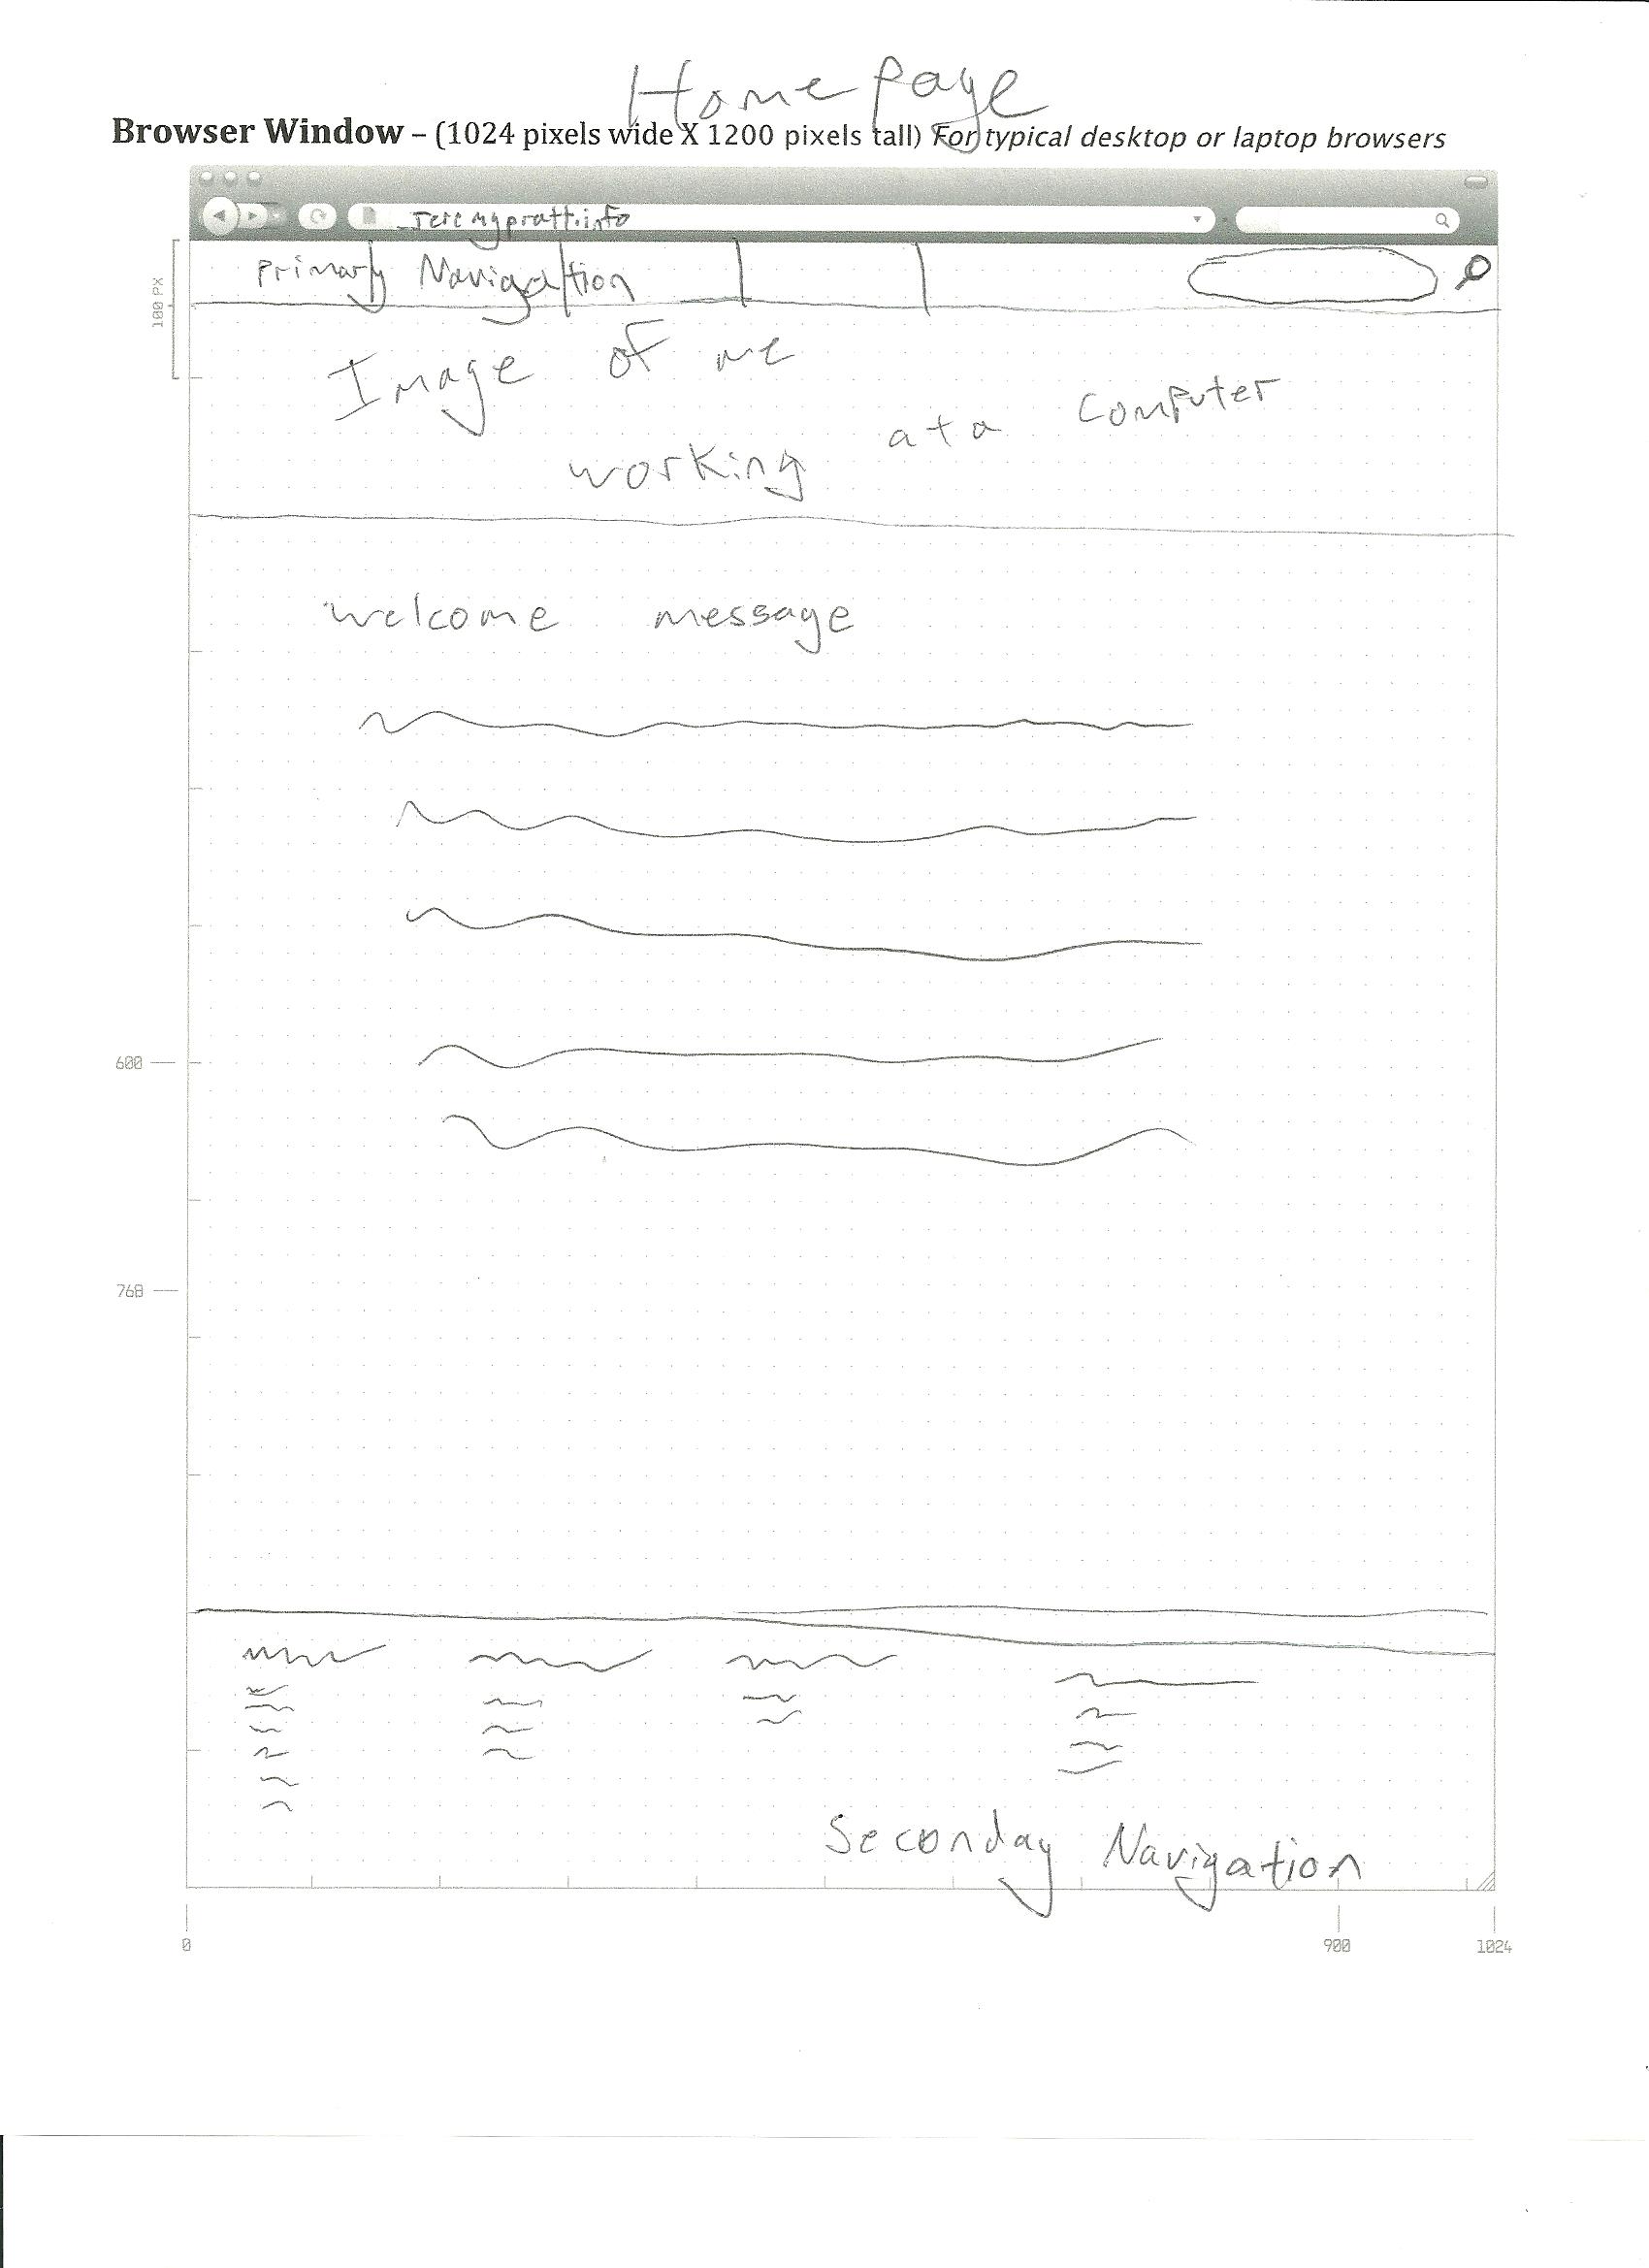 Home Page
Browser Window – (1024 pixels wide X 1200 pixels tall) For typical desktop or laptop browsers
Jeremypratt.info
100 PX
Primary Navigation
Image of me
working at a computer
welcome message
600
768
Seconday Navigation
0
900
1024